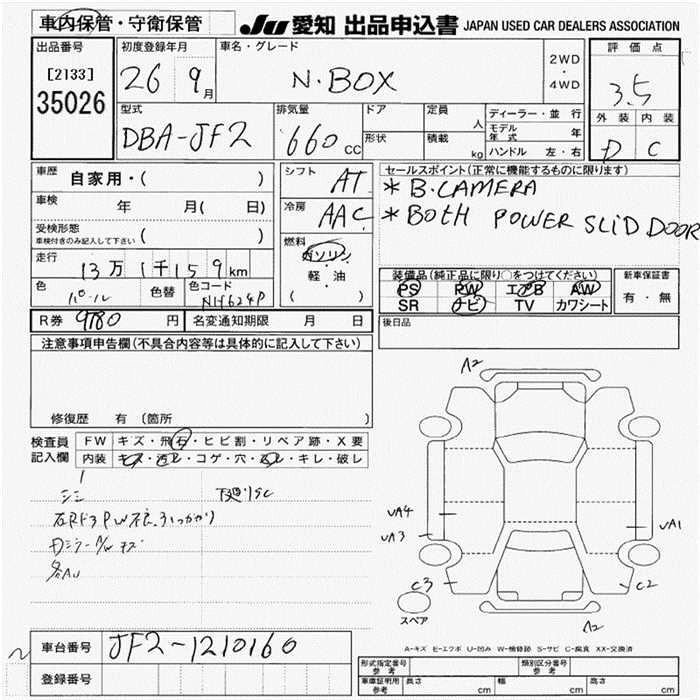 車内保管・守衛保管
JU 愛知 出品申込書 JAPAN USED CAR DEALERS ASSOCIATION
出品番号
[2133]
35026
初度登録年月
26 9月
車名・グレード
N・BOX
2WD
・
4WD
評価点
3.5
外装 内装
D C
型式
DBA-JF2
排気量
660cc
ドア
形状
定員 人
積載 kg
ディーラー・並行
モデル年式 年
ハンドル 左・右
車歴 自家用・( )
車検 年 月( 日)
受検形態
車検付きのみ記入して下さい ( )
走行 13万1千159km
色 パール
色替
色コード NH624P
シフト AT
冷房 AAC
燃料
ガソリン
・
軽・油
( )
セールスポイント(正常に機能するものに限ります)
* B.CAMERA
* BOTH POWER SLID DOOR
装備品(純正品に限り○をつけてください)
PS PW エアB AW
SR ナビ TV カワシート
新車保証書
有・無
R券 9780 円
名変通知期限 月 日
後日品
注意事項申告欄(不具合内容等は具体的に記入して下さい)
修復歴 有 〔箇所 〕
検査員
記入欄
FW キズ・飛石・ヒビ割・リペア跡・X要
内装 キズ・汚れ・コゲ・穴・ヌレ・キレ・破レ
シミ
下廻リSC
左Rドア PW
Dミラー
各AU
A2
UA4
UA3
UA1
C3
C2
A2
スペア
A-キズ E-エクボ U-凹み W-補修跡 S-サビ C-腐食 XX-交換済
車台番号 JF2-1210160
登録番号
形式指定番号
参考
類別区分番号
参考
車庫証明用
参考
長さ cm
幅 cm
高さ cm